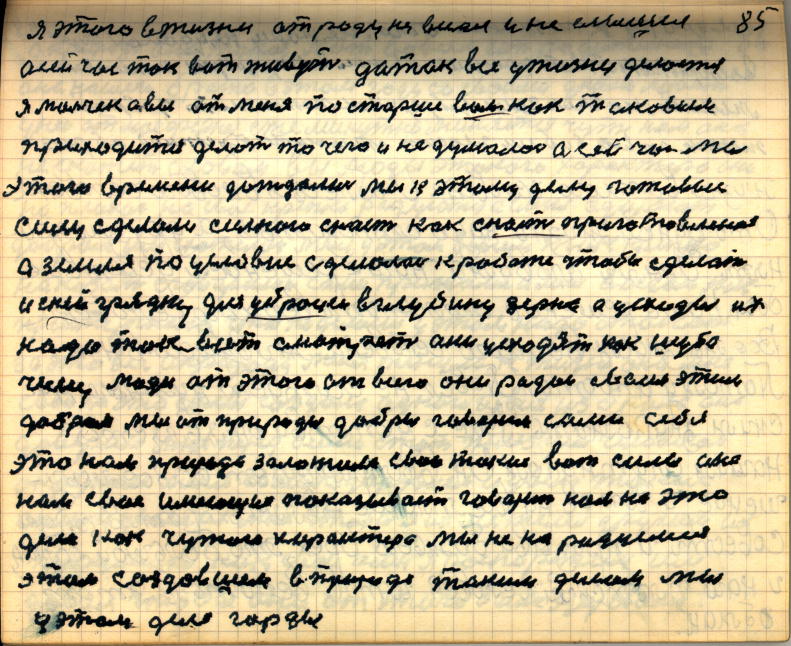 я этого в жизни от роду не видел и не слышел 85
а сей час ток вот живут да так все у жизни делается
я молчек а вы от меня по старше вам как таковым
приходится делат то чего и не думалос а сей час мы
этого времени дождались мы к этому делу готовые
силу сделали силного снаст как снаст приготовленая
а земля по условие сделалас к работе чтобы сделат
и с ней грядку для уброски в глубину зерна а усходы их
надо так вот смотрет они усходят как шуба
чему люди от этого от всего они рады своем этим
добром мы от природы добры говорим сами себя
это нам природа заложила свои такие вот силы она
нам свое имеющие показывает говорит нам на это
дела как чужого характера мы не на радуемся
этом создовшем в природе таким делам мы
у этом деле горды